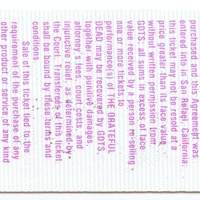 purchased and this Agreement was
entered into in San Rafael, California
this ticket may not be resold at a
price greater than its face value
without written permission from
GDTS. All such excess of face
value received by a person re-selling
one or more tickets to
performance(s) of THE GRATEFUL
DEAD may be recovered by GDTS,
together with punitive damages,
attorney's fees, court costs, and
injunctive relief, as determined by
the Court. Transferees of the ticket
shall be bound by these terms and
conditions.
Sale of this ticket tied to the
requirement of the purchase of any
other product or service of any kind